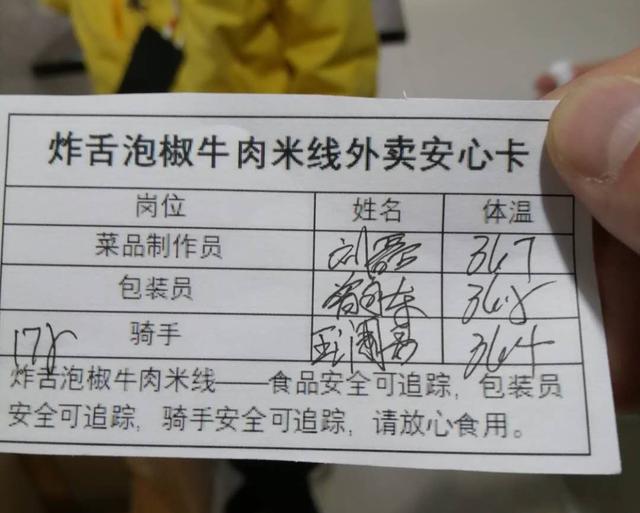 炸舌泡椒牛肉米线外卖安心卡
岗位 姓名 体温
菜品制作员 刘 36.7
包装员 36.8
骑手 36.4
炸舌泡椒牛肉米线——食品安全可追踪，包装员
安全可追踪，骑手安全可追踪，请放心食用。